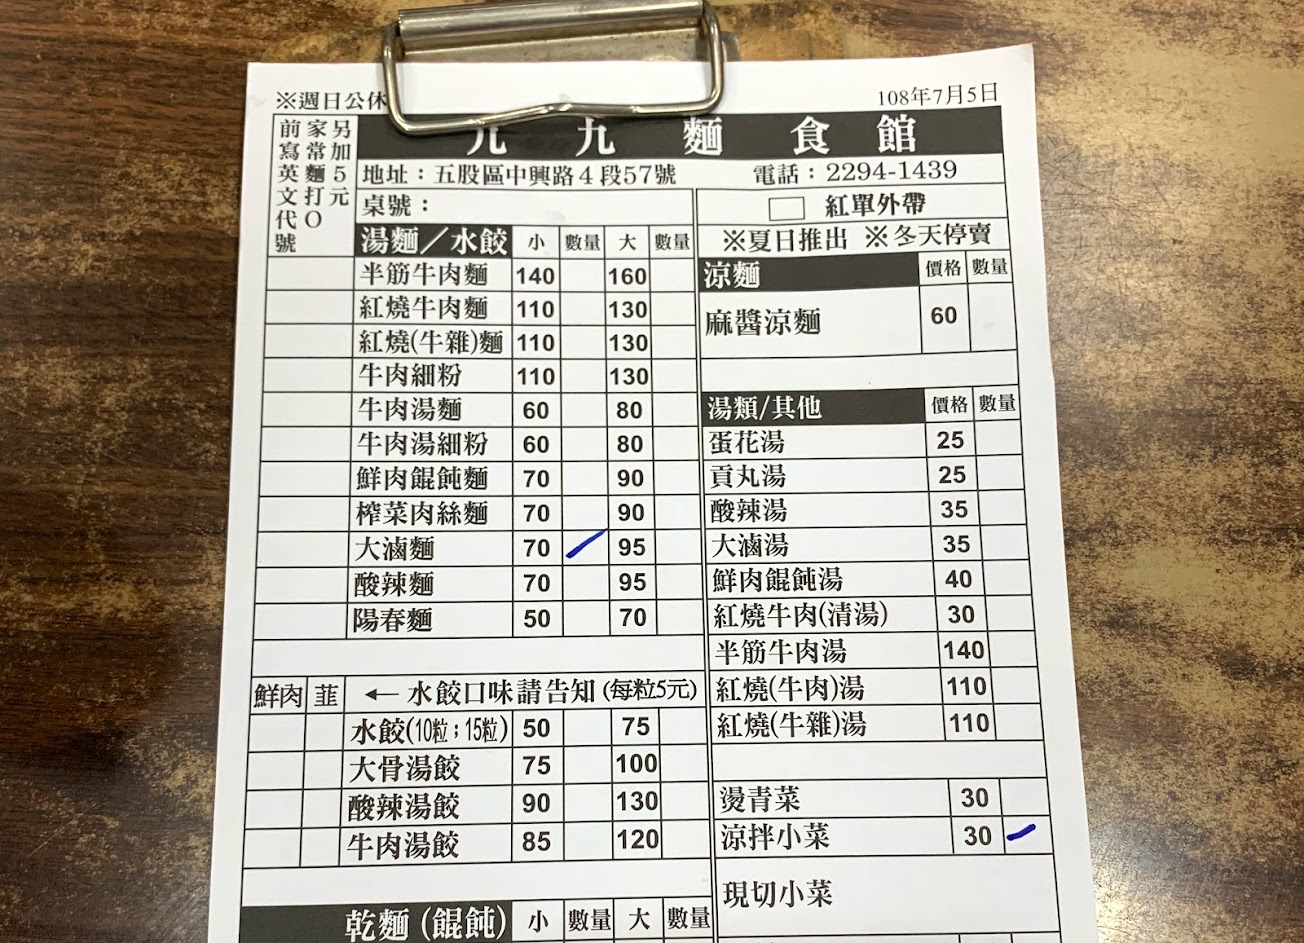 ※週日公休
108年7月5日
九九麵食館
另加5元
家常麵打O
前寫英文代號
地址：五股區中興路4段57號 電話：2294-1439
桌號：
紅單外帶
※夏日推出 ※冬天停賣
湯麵／水餃 小 數量 大 數量
半筋牛肉麵 140 160
紅燒牛肉麵 110 130
紅燒(牛雜)麵 110 130
牛肉細粉 110 130
牛肉湯麵 60 80
牛肉湯細粉 60 80
鮮肉餛飩麵 70 90
榨菜肉絲麵 70 90
大滷麵 70 95
酸辣麵 70 95
陽春麵 50 70
鮮肉 韮 ←水餃口味請告知(每粒5元)
水餃(10粒；15粒) 50 75
大骨湯餃 75 100
酸辣湯餃 90 130
牛肉湯餃 85 120
乾麵(餛飩) 小 數量 大 數量
涼麵 價格 數量
麻醬涼麵 60
湯類/其他 價格 數量
蛋花湯 25
貢丸湯 25
酸辣湯 35
大滷湯 35
鮮肉餛飩湯 40
紅燒牛肉(清湯) 30
半筋牛肉湯 140
紅燒(牛肉)湯 110
紅燒(牛雜)湯 110
燙青菜 30
涼拌小菜 30
現切小菜